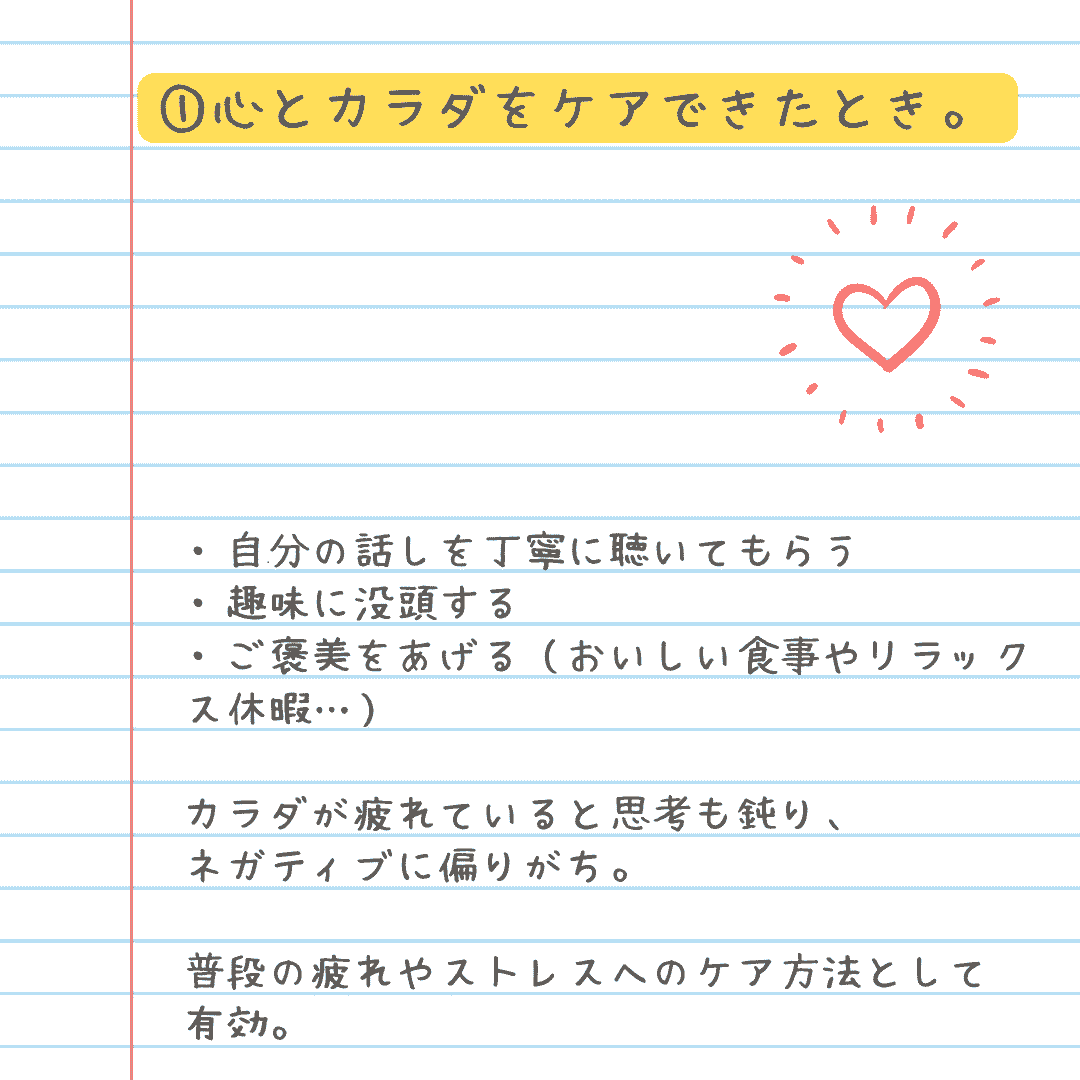 ①心とカラダをケアできたとき。
・自分の話しを丁寧に聴いてもらう
・趣味に没頭する
・ご褒美をあげる（おいしい食事やリラック
ス休暇…）
カラダが疲れていると思考も鈍り、
ネガティブに偏りがち。
普段の疲れやストレスへのケア方法として
有効。